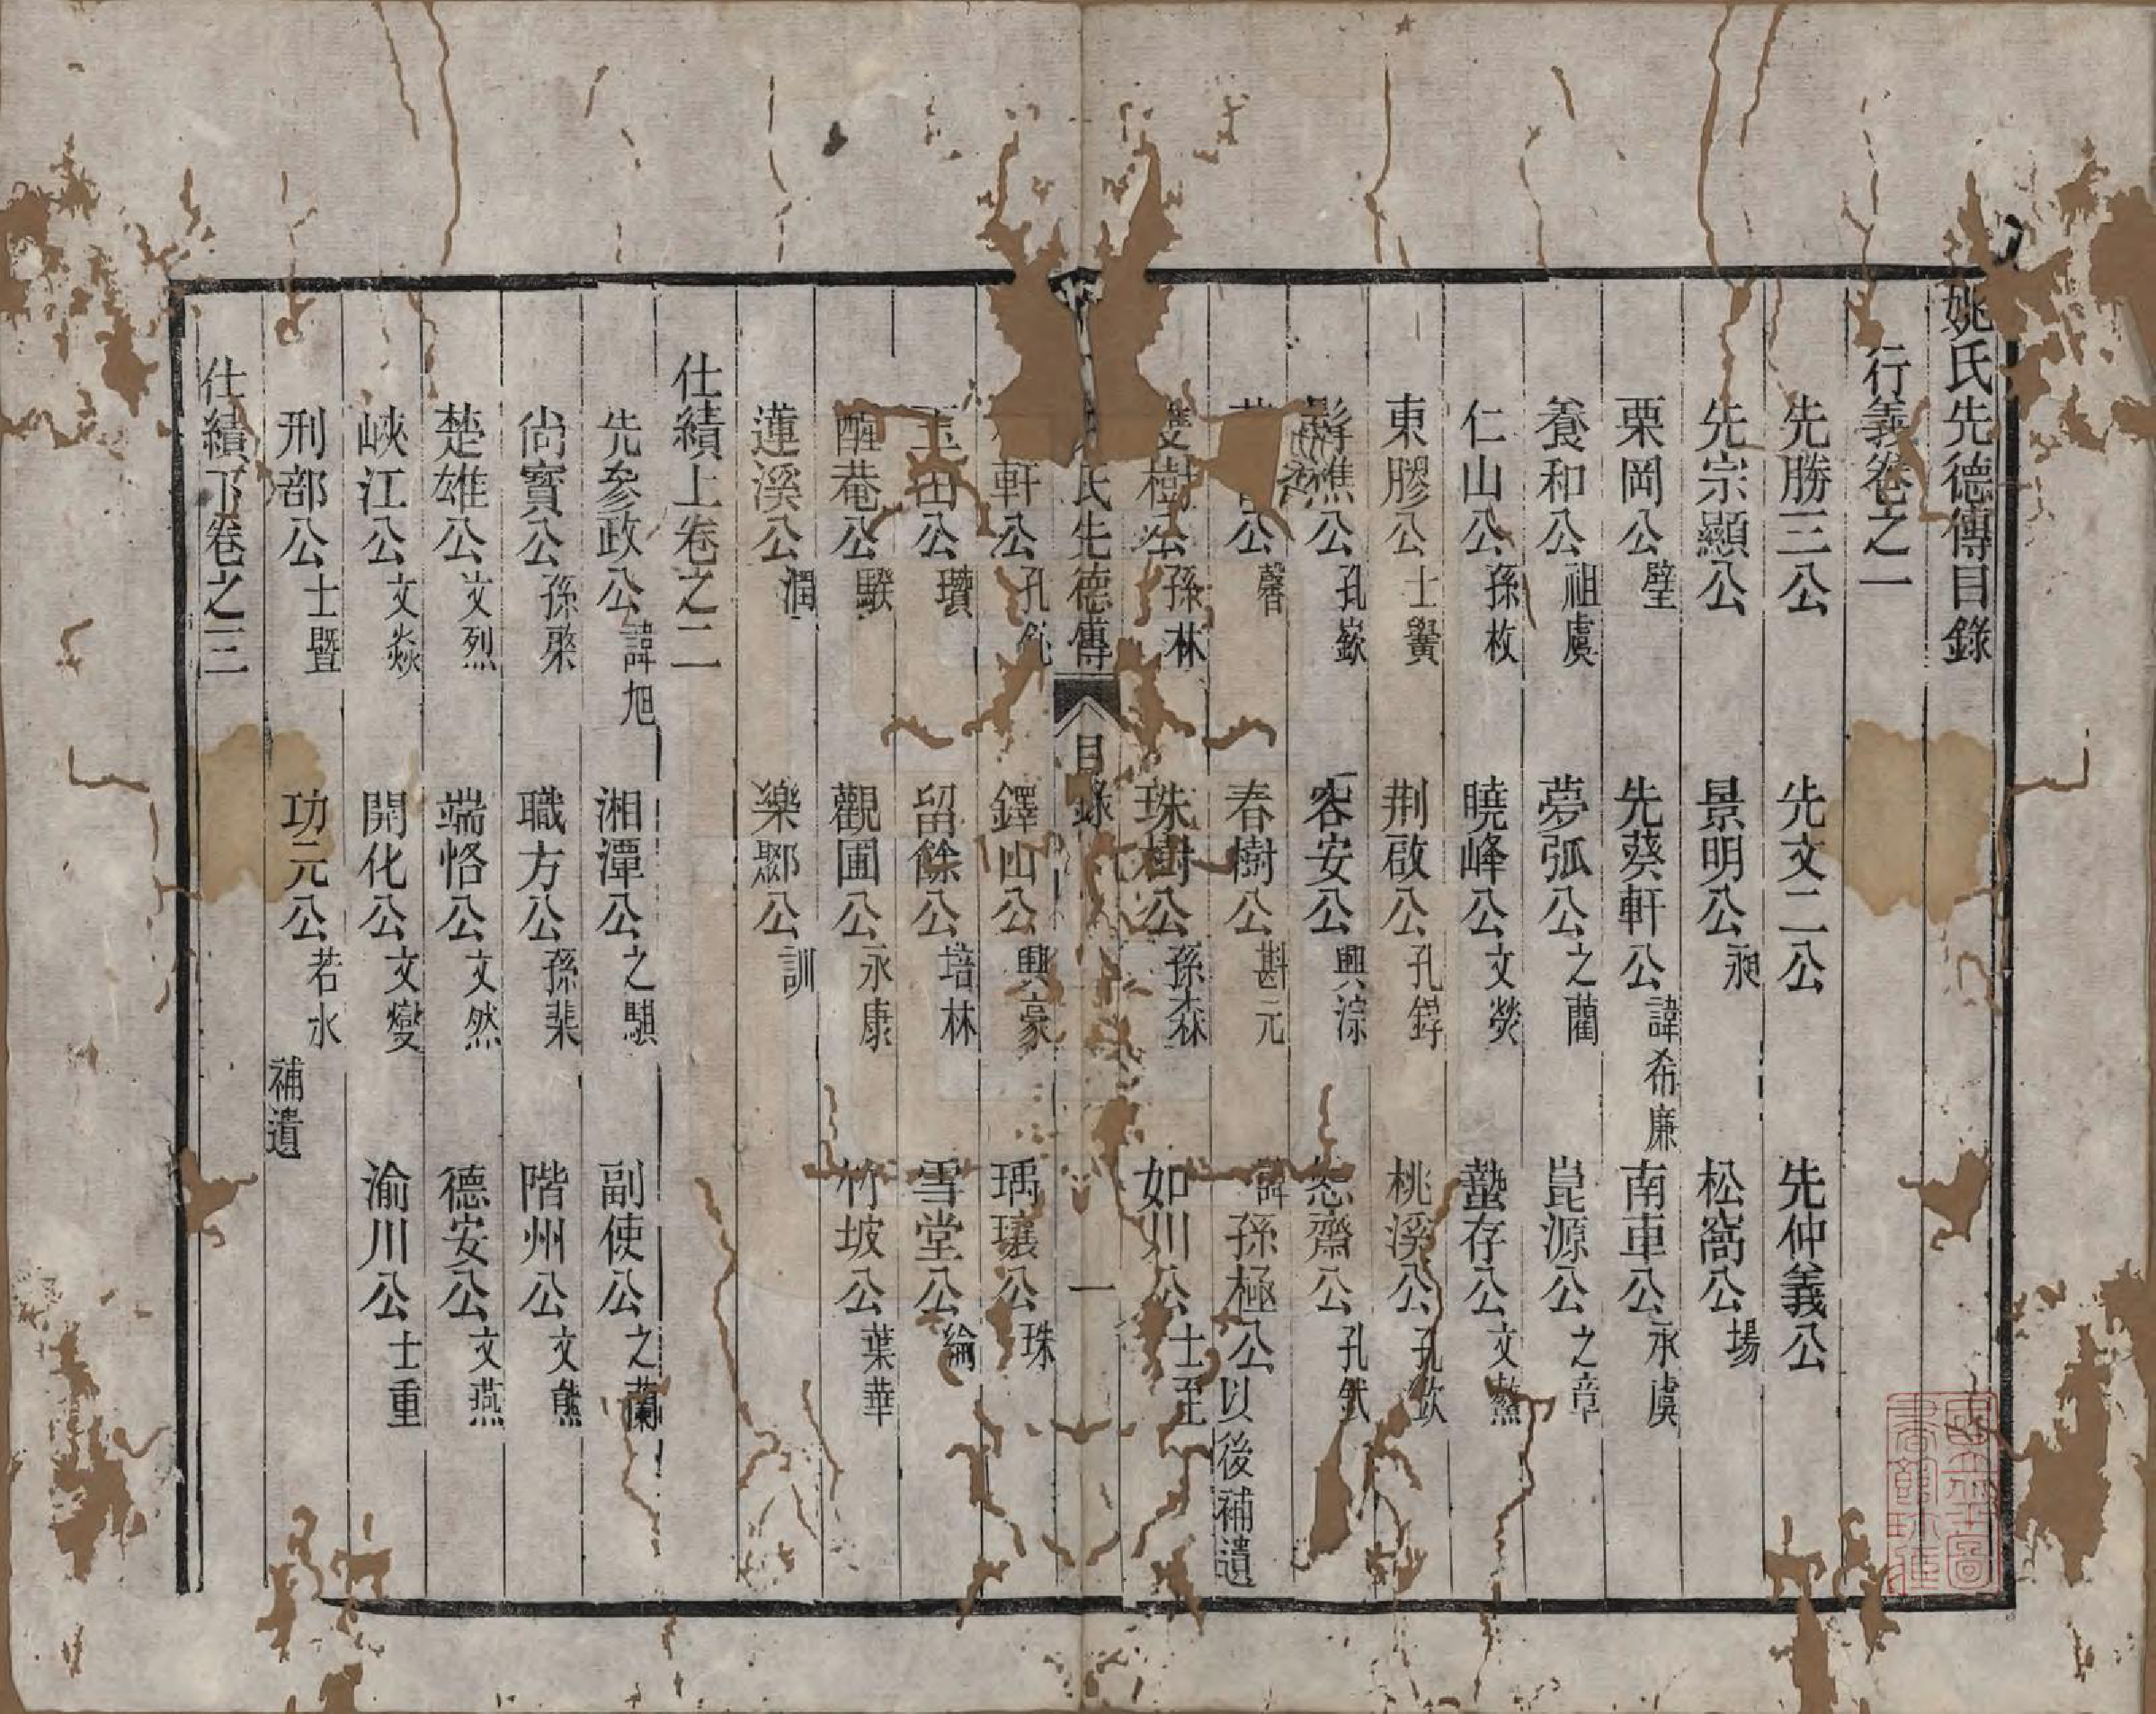 姚氏先德傳目錄
行義卷之一
先勝三公 先文二公 先仲義公
先宗顯公 景明公昶 松窩公場
栗岡公璧 先葵軒公諱希廉 南車公承虞
養和公祖虞 夢弧公之藺 崑源公之章
仁山公孫枚 曉峰公文熒 蟄存公文熬
東膠公士黌 荆啟公孔鋝 桃溪公孔欽
樵公孔嶔 客安公興淙 恕齋公孔鈇
公馨 春樹公斟元 諱孫極公以後補遺
雙樹公孫林 珠樹公孫森 如川公士至
氏先德傳 目錄 一
軒公孔 鐸山公興豪 瑀瓖公珠
玉田公瓚 留餘公培林 雪堂公綸
醒菴公騤 觀圃公永康 竹坡公葉華
蓮溪公潤 樂郰公訓
仕績上卷之二
先參政公諱旭 湘潭公之騏 副使公之蘭
尚寶公孫棨 職方公孫棐 階州公文熊
楚雄公文烈 端恪公文然 德安公文燕
峽江公文焱 開化公文燮 渝川公士重
刑部公士暨 功元公若水 補遺
仕績下卷之三